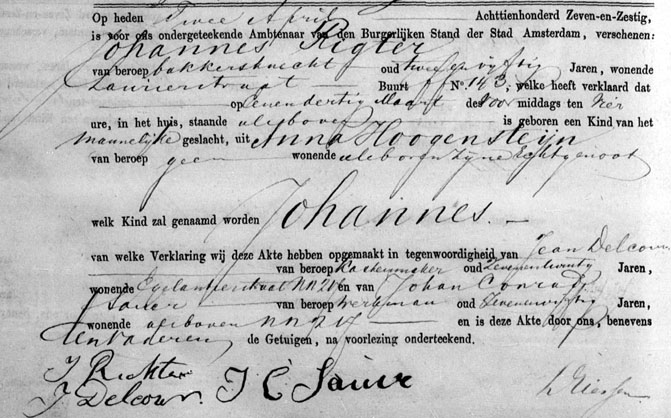 Op heden Twee April Achttienhonderd Zeven-en-Zestig,
is voor ons ondergeteekende Ambtenaar van den Burgerlijken Stand der Stad Amsterdam, verschenen:
Johannes Rigter
van beroep bakkersknecht oud twee en vyftig Jaren, wonende
Laurierstraat Buurt No. 143, welke heeft verklaard dat
op een en dertig Maart des voor middags ten vier
ure, in het huis, staande als boven is geboren een Kind van het
mannelyke geslacht, uit Anna Hoogensteijn
van beroep geen wonende als boven zyne Echtgenoot
welk Kind zal genaamd worden Johannes. —
van welke Verklaring wij deze Akte hebben opgemaakt in tegenwoordigheid van Jean Delcour
van beroep oud Jaren,
wonende Egelantierstraat en van Johan Conrad
Sauer van beroep Werkman oud Jaren,
wonende als boven en is deze Akte door ons, benevens
den vader en de Getuigen, na voorlezing onderteekend.
J Richter
J Delcour J C Sauer